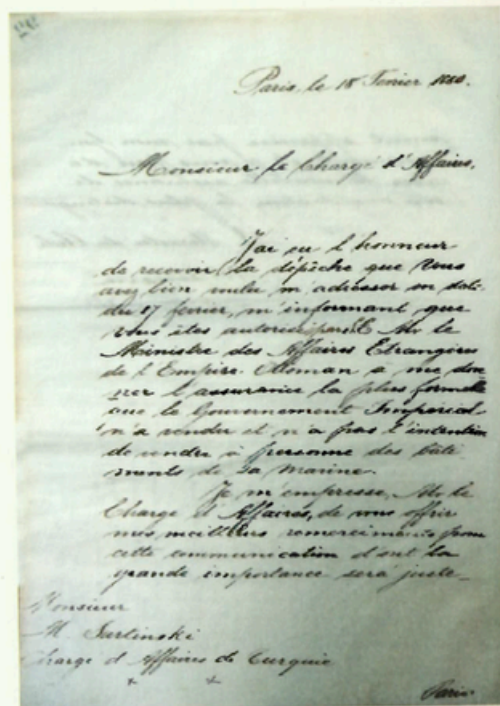 Paris, le 18 Fevrier 1880.
Monsieur le Chargé d'Affaires,
J'ai eu l'honneur
de recevoir la dépêche que vous
avez bien voulu m'adresser en date
du 17 fevrier, m'informant que
vous êtes autorisé par Mr le
Ministre des Affaires Etrangères
de l'Empire Ottoman a me don
ner l'assurance la plus formelle
que le Gouvernement Impérial
n'a vendu et n'a pas l'intention
de vendre à personne des bâti
ments de sa marine.
Je m'empresse, Mr le
Chargé d'Affaires, de vous offrir
mes meilleurs remerciments pour
cette communication d'ont la
grande importance sera juste-
Monsieur
M. Sartinski
Chargé d'Affaires de Turquie
Paris.